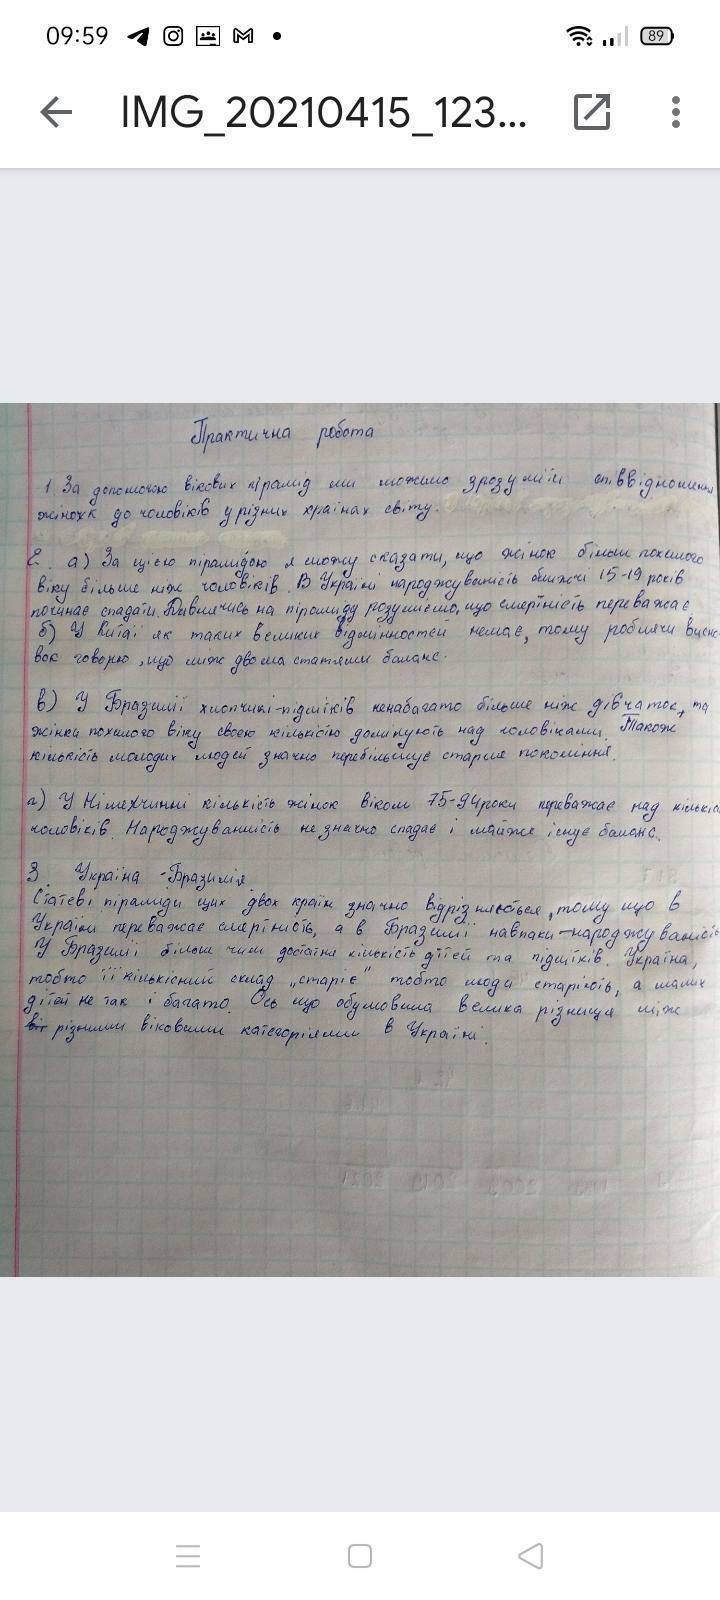 09:59
89
IMG_20210415_123...
Практична робота
1. За допомогою вікових пірамід ми можемо зрозуміти співвідношення
жінок до чоловіків у різних країнах світу.
2. а) За цією пірамідою я можу сказати, що жінок більш похилого
віку більше ніж чоловіків. В Україні народжуваність ближчі 15-19 років
починає спадати. Дивлячись на піраміду розуміємо, що смертність переважає.
б) У Китаї як таких великих відмінностей немає, тому роблячи висно-
вок говорю, що між двома статями баланс.
в) У Бразилії хлопчиків-підлітків ненабагато більше ніж дівчаток, та
жінки похилого віку своєю кількістю домінують над чоловічами. Також
кількість молодих людей значно перебільшує старше покоління.
г) У Німеччинні кількість жінок віком 75-94роки переважає над кількіс
чоловіків. Народжуванність не значно спадає і майже існує баланс.
3. Україна - Бразилія
Статеві піраміди цих двох країн значно відрізняється, тому що в
Україні переважає смертність, а в Бразилії навпаки-народжуваність
У Бразилії більш чим достатня кількість дітей та підлітків. Україна,
тобто її кількісний склад „старіє" тобто люди старіють, а малих
дітей не так і багато. Ось що обумовила велика різниця між
різними віковими категоріями в Україні.